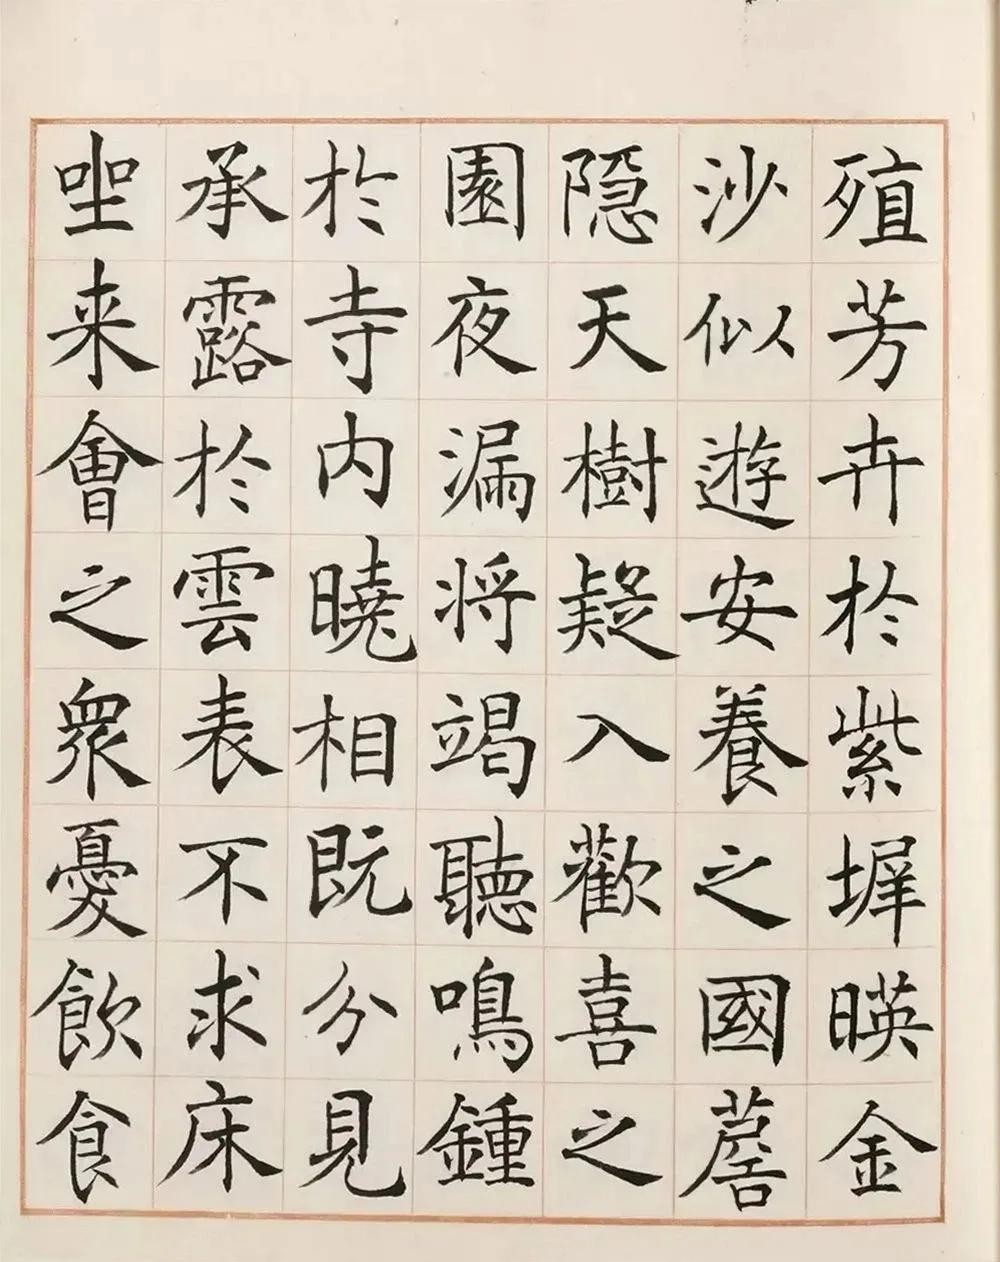 殖芳卉於紫墀暎金
沙似遊安養之國薝
隐天樹疑入歡喜之
園夜漏将竭聽鳴鍾
於寺内曉相既分見
承露於雲表不求床
坐来會之衆憂飲食